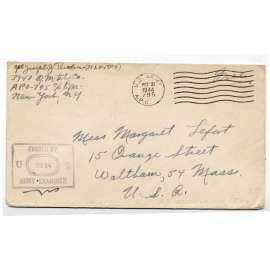 3948 Q M Trk. Co.
APO-795 c/o P.M.
New York, N.Y.
U.S. ARMY
1944
795
A.P.O.
Free
Miss Margaret Lefort
15 Orange Street
Waltham, 54 Mass.
U. S. A.
PASSED BY
U S
ARMY EXAMINER